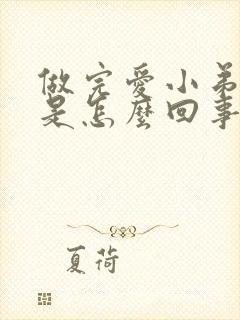 做完愛小弟
是怎麼回事
夏荷